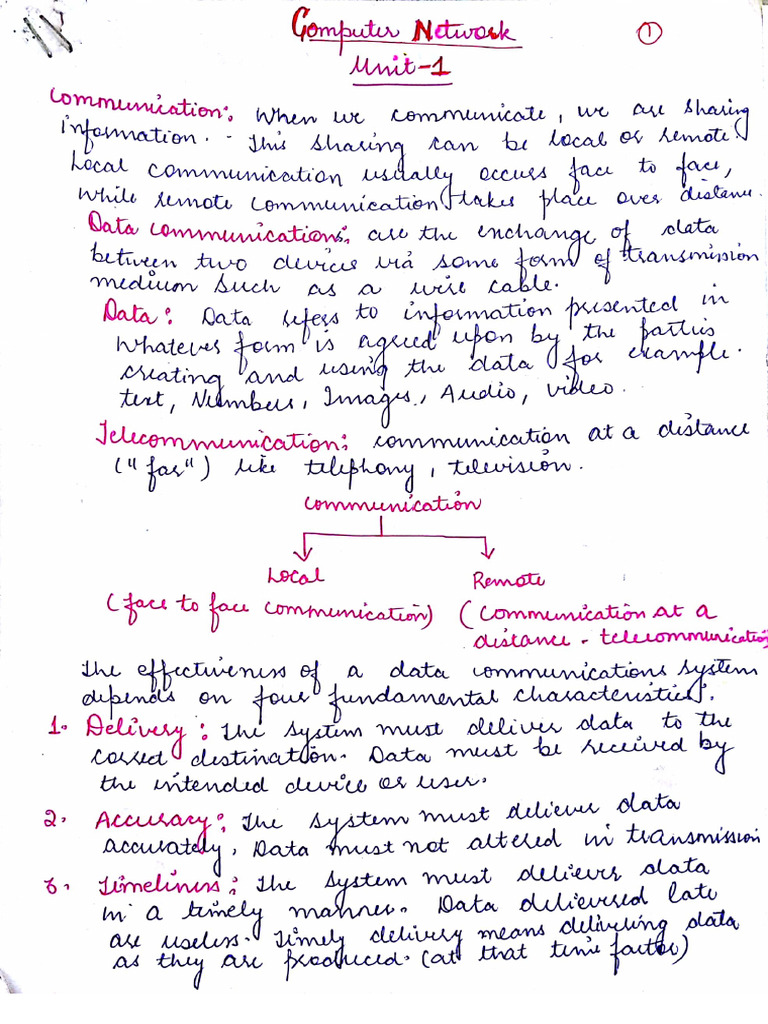 Computer Network
1
Unit-1
Communication: When we communicate, we are sharing
information. - This sharing can be local or remote.
Local communication usually occurs face to face,
while remote communication takes place over distance.
Data communications: are the exchange of data
between two devices via some form of transmission
medium such as a wire cable.
Data: Data refers to information presented in
whatever form is agreed upon by the parties
creating and using the data for example.
text, Numbers, Images, Audio, video.
Telecommunication: communication at a distance
("far") like telephony, television.
Communication
Local Remote
(face to face communication) (Communication at a
distance - telecommunication
The effectiveness of a data communications system
depends on four fundamental characteristics.
1. Delivery: The system must deliver data to the
correct destination. Data must be received by
the intended device or user.
2. Accuracy: The system must deliever data
accurately, Data must not altered in transmission
3. Timeliness: The system must deliever data
in a timely manner. Data delievered late
are useless. Timely delivery means delivering data
as they are produced. (at that time factor)